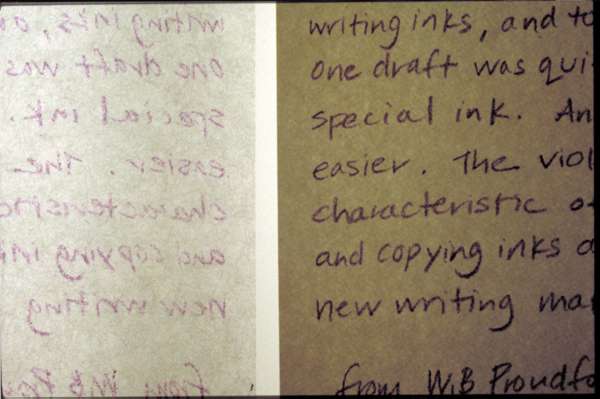 writing inks, an
One draft was
special ink.
easier. The
characteristic
and copying in
new writing
from W.B Pro
writing inks, and to
One draft was qui
special ink. An
easier. The viol
characteristic o
and copying inks a
new writing ma
from W.B Proudfo